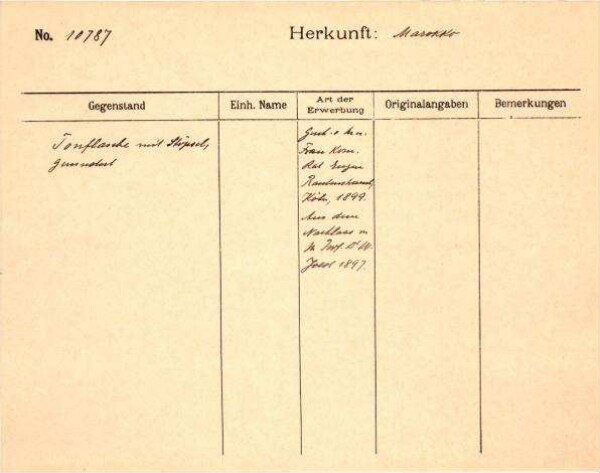 No. 10787
Herkunft: Marokko
Gegenstand
Einh. Name
Art der
Erwerbung
Originalangaben
Bemerkungen
Tonflasche mit Stöpsel,
Frau Kom.
Rat Eugen
Rautenstrauch,
Köln, 1899.
Aus dem
Nachlass v.
Prof. Dr W.
Joest 1897